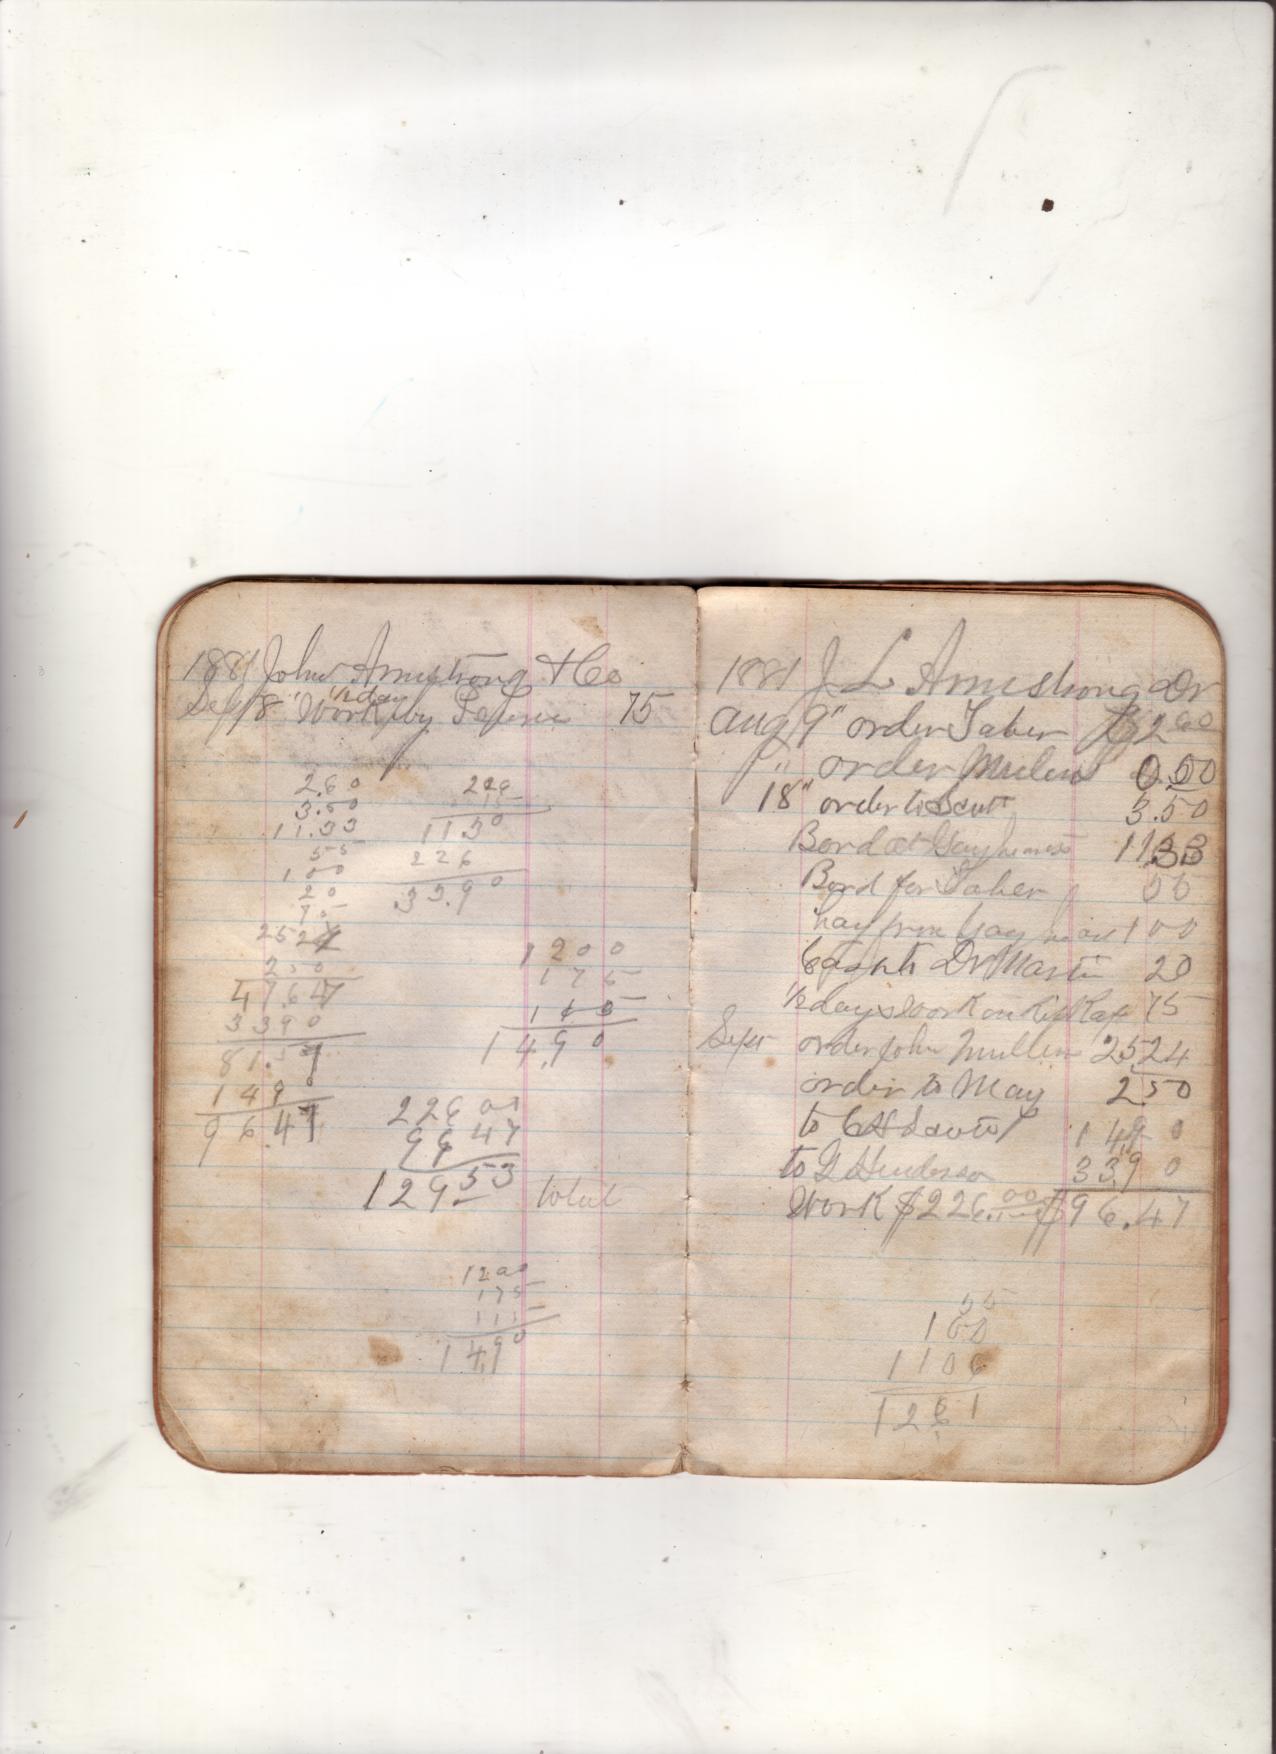 1881 John Armstrong & Co
Sept 8" Work 1/2 day by 75
2.60
3.50
11.33
55
1 00
20
75
25 24
2 50
47 67
33 90
81.57
14 90
96.47
226
15
1130
226
33.90
1 2 0 0
1 7 5
1 1 5
1 4.9 0
226 00
96 47
129 53 total
12 00
1 75
1 15
14.90
1881 J L Armstrong Dr
Aug 9" order Taber $2 60
" order Mulen 0.50
18" order to Scott 3.50
Bord at 11.33
Bord for Taber 55
hay from 1 00
Cash to Dr Martin 20
1/2 days work on Rip Rap 75
Sept order John Mullen 25 24
order to May 2.50
to C H 14.90
to G Henderson 33.90
Work $226.00 $96.47
55
1 00
11 06
12 61